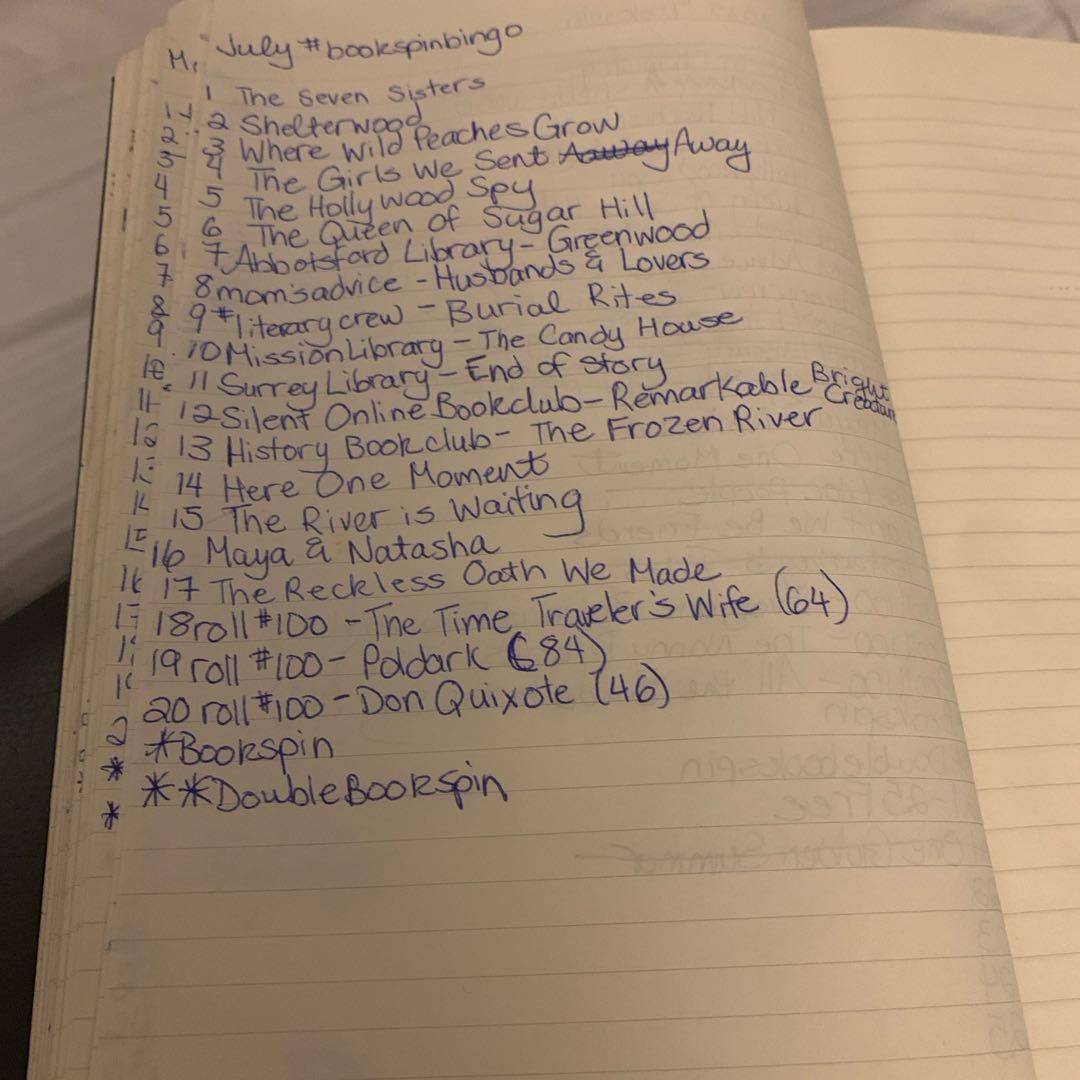 July #bookspinbingo
1 The Seven Sisters
2 Shelterwood
3 Where Wild Peaches Grow
4 The Girls We Sent Aaway Away
5 The Hollywood Spy
6 The Queen of Sugar Hill
7 Abbotsford Library - Greenwood
8 momsadvice - Husbands & Lovers
9 #literarycrew - Burial Rites
10 Mission Library - The Candy House
11 Surrey Library - End of Story
12 Silent Online Bookclub - Remarkable Bright
13 History Bookclub - The Frozen River
14 Here One Moment
15 The River is Waiting
16 Maya & Natasha
17 The Reckless Oath We Made
18 roll #100 - The Time Traveler's Wife (64)
19 roll #100 - Poldark (84)
20 roll #100 - Don Quixote (46)
*Bookspin
**DoubleBookspin